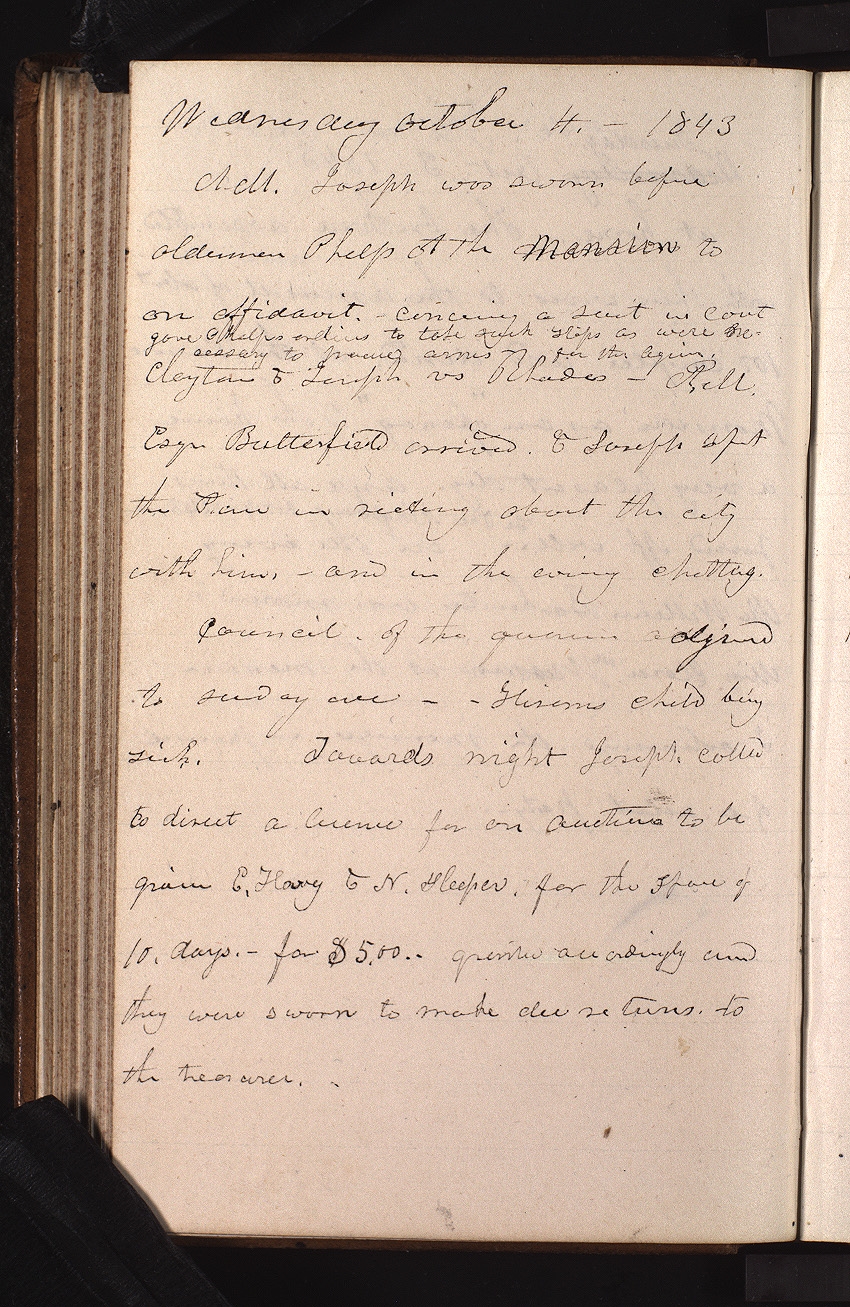 Wednesday October 4. - 1843
A.M. Joseph was sworn before
alderman Phelps at the Mansion to
an affidavit. - concering a suit in cout
gave Phelps orders to take such steps as were ne-
cessary to for the again.
Clayton & Joseph vs Rhodes - P.M.
Esqr Butterfield arrived. & Joseph spt
the time in riding about the city
with him. - and in the evning chatting.
Council. of the quorum adjrnd
to sunday eve - - Hirams child being
sick. Towards night Joseph called
to direct a licence for an auction to be
given E. Harvy & N. Sleeper. for the space of
10. days. - for $5,00. - granted accordingly and
they were sworn to make due returns. to
the treasurer. -